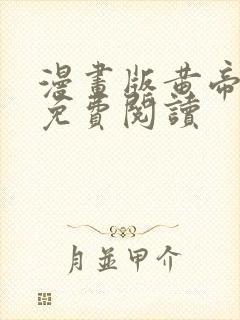 漫畫版黃帝
免費閱讀
月並甲介